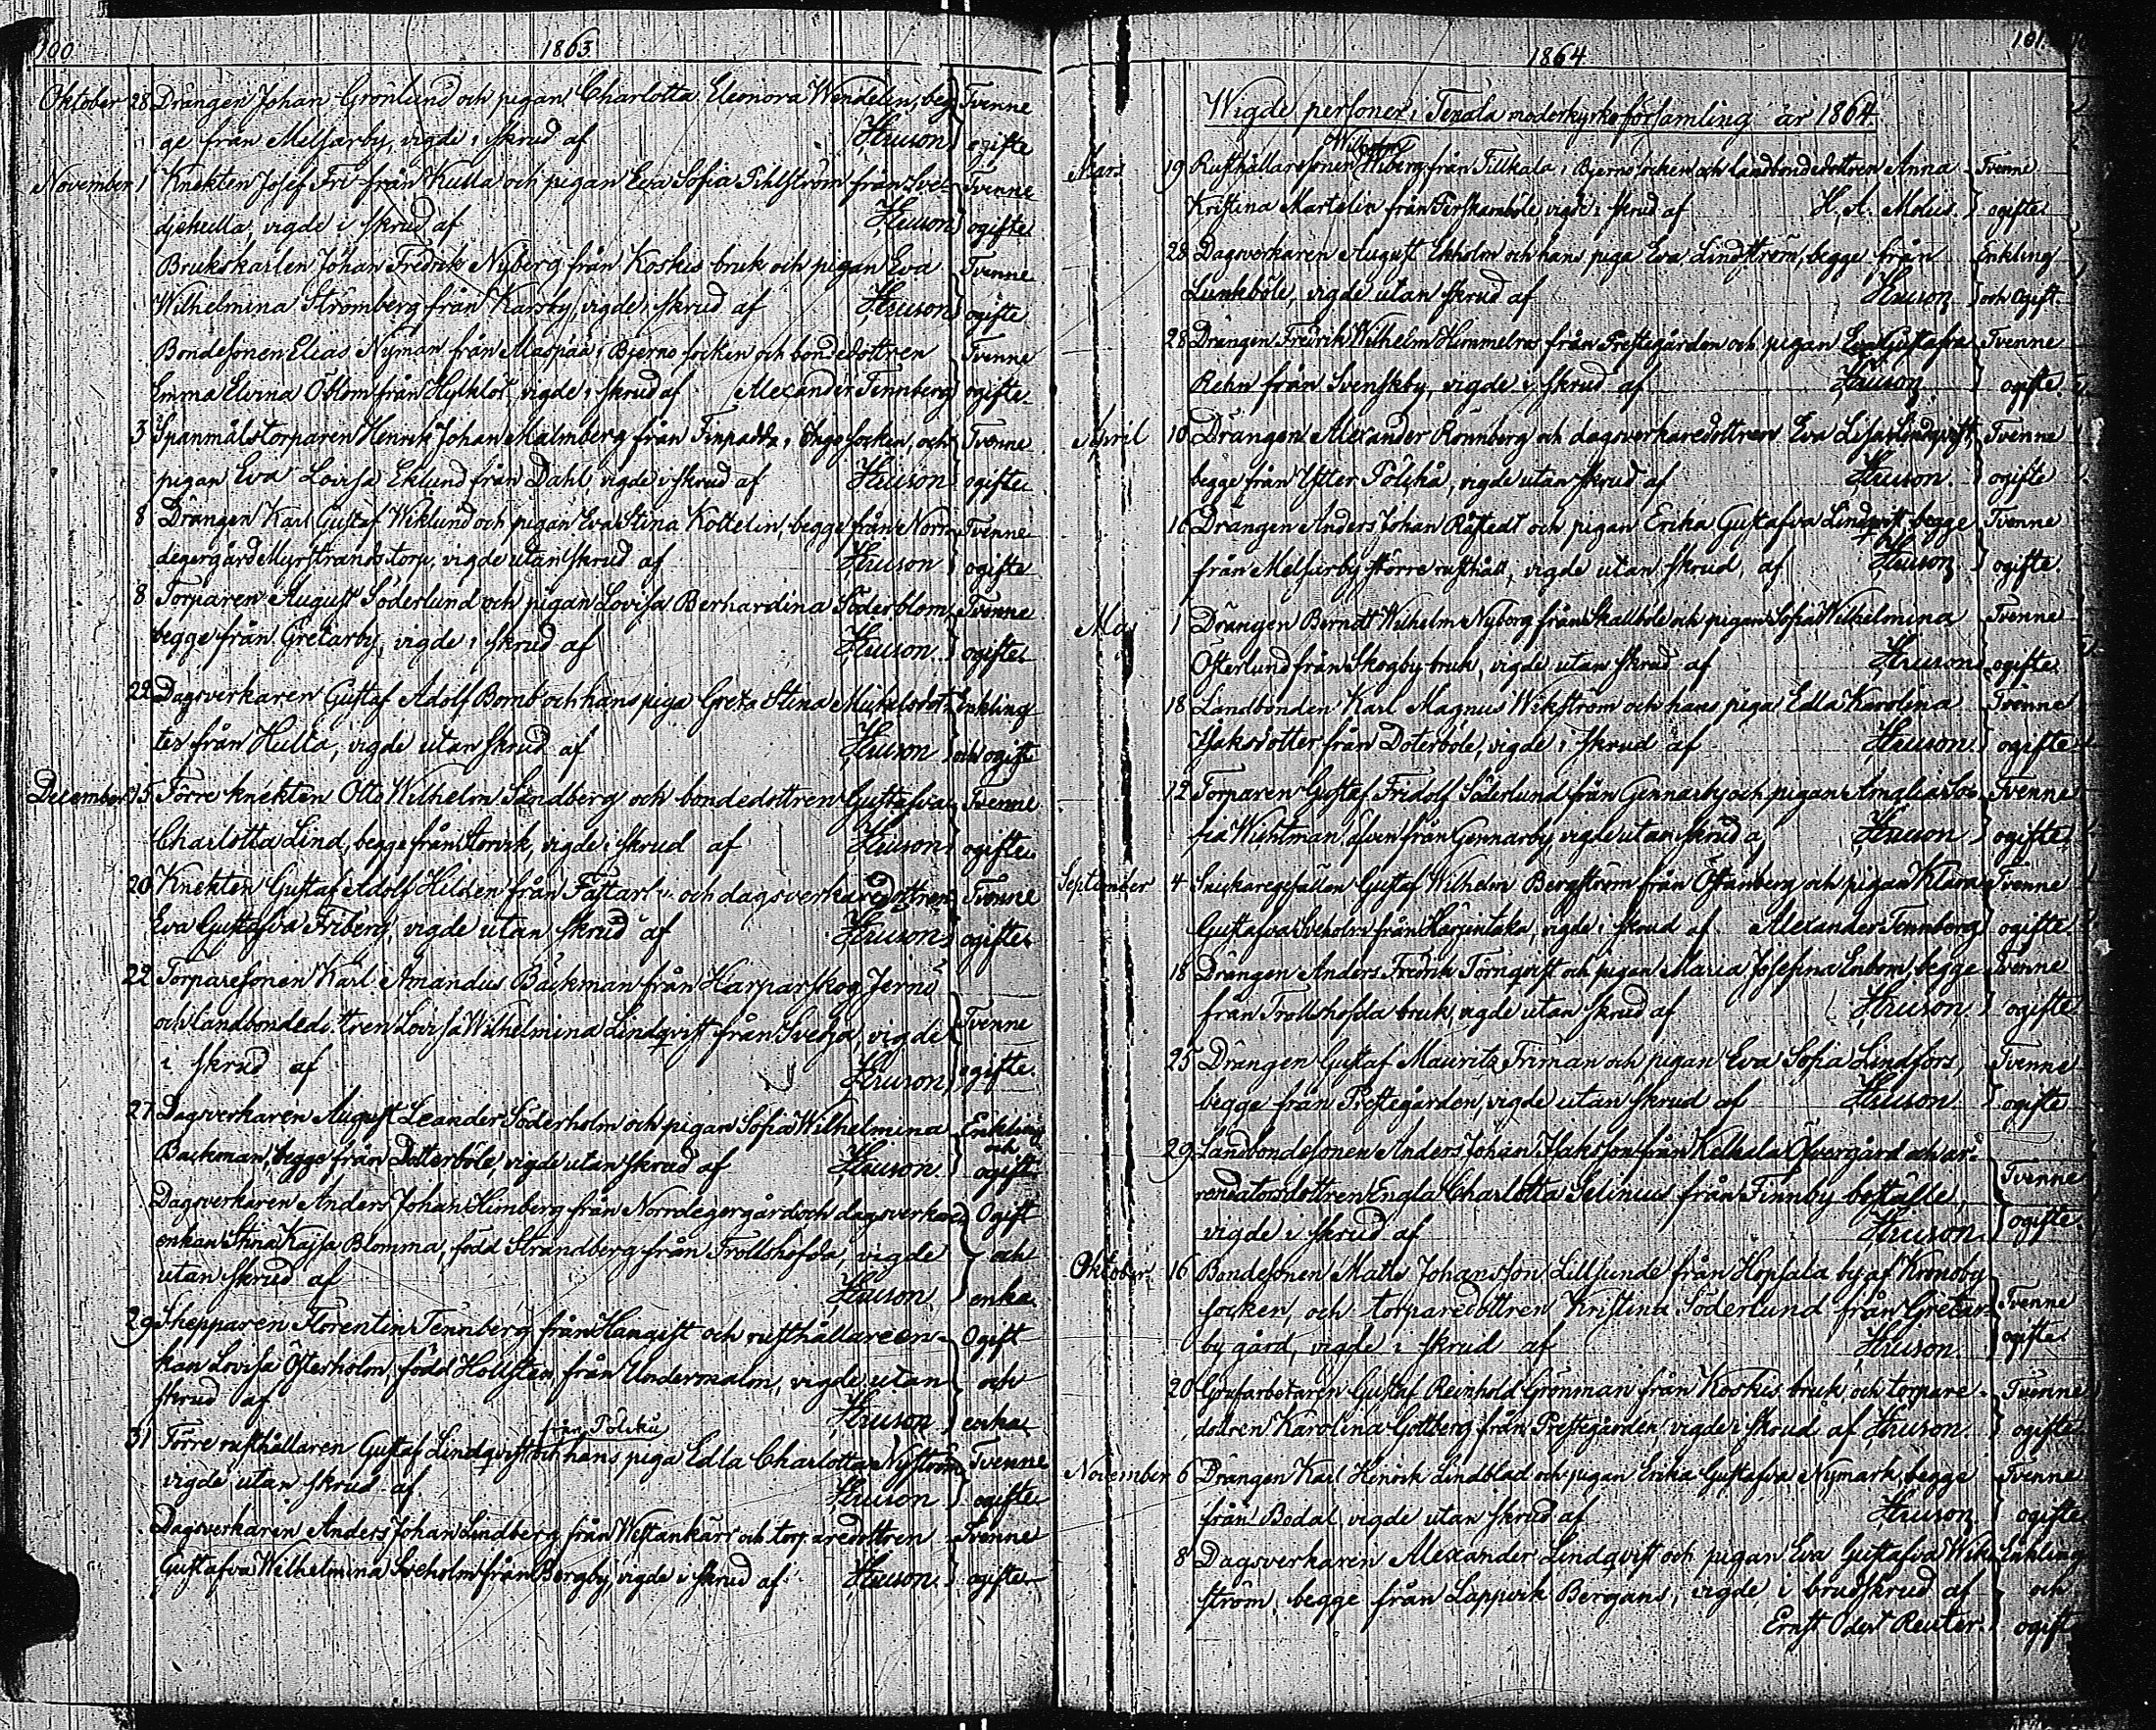 100
1863
Oktober 28 Drängen Johan Grönlund och pigan Charlotta Eleonora Wendelin, beg- Tvenne
ge från Melsarby, vigde i skrud af ogifte
November 1 Knekten Josef Fri från Kulla och pigan Eva Sofia Pihlström från Sve- Tvenne
djekulla vigde i skrud af ogifte
Brukskarlen Johan Fredrik Nyberg från Koskis bruk och pigan Eva Tvenne
Wilhelmina Strömberg från Karsby, vigde i skrud af ogifte
Bondesonen Elias Nyman från Maspää i Bjerno socken och bondedottren Tvenne
Emma Elvina Öblom från vigde i skrud af Alexander Tennberg ogifte
3 Spanmålstorparen Henrik Johan Malmberg från Finpadda i Ingo socken, och Tvenne
pigan Eva Lovisa Eklund från Dahl vigde i skrud af ogifte
8 Drängen Karl Gustaf Wiklund och pigan Eva Stina Kottelin, begge från Norr- Tvenne
degergård Myrstrands torp, vigde utan skrud af ogifte
8 Torparen August Söderlund och pigan Lovisa Berhardina Söderblom, Tvenne
begge från Gretarby, vigde i skrud af ogifte
22 Dagsverkaren Gustaf Adolf Bomb och hans piga Greta Stina Mickelsdot- Enkling
ter från Hulta, vigde utan skrud af och ogift
December 15 Förre knekten Otto Wilhelm Sandberg och bondedottren Gustafva Tvenne
Charlotta Lind, begge från Storvik, vigde i skrud af ogifte
20 Knekten Gustaf Adolf Hilden från och dagsverkaredottren Tvenne
Eva Gustafva Friberg, vigde utan skrud af ogifte
22 Torparesonen Karl Amandus Bäckman från Harparskog
och landbondedottren Lovisa Wilhelmina Lindqvist från Sverja, vigde Tvenne
i skrud af ogifte
27 Dagsverkaren August Leander Söderholm och pigan Sofia Wilhelmina Enkling
och
Backman, begge från Dotterböle, vigde utan skrud af ogift
Dagsverkaren Anders Johan Himberg från Norrdegergård och dagsverkare Ogift
enkan Stina Kajsa Blomma, född Strandberg från Trollshofda, vigde och
utan skrud af enka
29 Skepparen Florentin Tennberg från Hangist och rusthållareen- Ogift
kan Lovisa Österholm, född Hollsten, från Undermalm, vigde utan och
skrud af enka
från Polsku
31 Förre rusthållaren Gustaf Lindqvist och hans piga Edla Charlotta Nyström Tvenne
vigde utan skrud af ogifte
Dagsverkaren Anders Johan Lindberg från Westankärr och torparedottren Tvenne
Gustafva Wilhelmina Sveholm från Bergby, vigde i skrud af ogifte
101
1864
Wigde personer i Tenala moderkyrkoförsamling år 1864
Mars 19 Rusthållaresonen Wiberg från i Bjerno socken och landbondedottren Anna Tvenne
Kristina Martelin från Perskamböle vigde i skrud af H. A. Molus. ogifte
28 Dagsverkaren August Ekholm och hans piga Eva Lindström, begge från Enkling
Lunkböle, vigde utan skrud af och ogift.
28 Drängen Fredrik Wilhelm Himmelros från Prestegården och pigan Eva Gustafva Tvenne
Rehn från Svenskby, vigde i skrud af ogifte
April 10 Drängen Alexander Rönnberg och dagsverkaredottren Eva Lisa Lindqvist Tvenne
begge från Ytter Pölskå, vigde utan skrud af ogifte
16 Drängen Anders Johan Råstedt och pigan Erika Gustafva Lindqvist begge Tvenne
från Melsarby större rusthåll, vigde utan skrud, af ogifte
Maj 1 Drängen Berndt Wilhelm Nyborg från Skallböle och pigan Sofia Wilhelmina Tvenne
Osterlund från Skogby bruk, vigde utan skrud af ogifte
18 Landbonden Karl Magnus Wikström och hans piga Edla Karolina Tvenne
Isaksdotter från Doterböle, vigde i skrud af ogifte
12 Torparen Gustaf Fridolf Söderlund från Gennarby och pigan Amalia So- Tvenne
fia Wichtman äfven från Gennarby vigde utan skrud af ogifte
September 4 Snickaregesällen Gustaf Wilhelm Bergström från Östanberg och pigan Klara Tvenne
Gustafva Sveholm från Harjentaka, vigde i skrud af Alexander Tennberg ogifte
18 Drängen Anders Fredrik Törnqvist och pigan Maria Josefina Enbom, begge Tvenne
från Trollshofda bruk, vigde utan skrud af ogifte
25 Drängen Gustaf Mauritz Friman och pigan Eva Sofia Lindfors, Tvenne
begge från Prestegården, vigde utan skrud af ogifte
29 Landbondesonen Anders Johan Isaksson från Kelkala Öfvergård och ar- Tvenne
rendatorsdottren Engla Charlotta Selinius från Finnby boställe,
vigde i skrud af ogifte
Oktober 16 Bondesonen Matts Johansson Lillsunde från Hopsala by af Kronoby
socken, och torparedottren Kristina Söderlund från Gretar- Tvenne
by gård, vigde i skrud af ogifte
20 Grufarbetaren Gustaf Reinhold Grönman från Koskis bruk och torpare- Tvenne
dottren Karolina Gottberg från Prestegården vigde i skrud af ogifte
November 6 Drängen Karl Henrik Lindblad och pigan Erika Gustafva Nymark, begge Tvenne
från Bodal, vigde utan skrud af ogifte
8 Dagsverkaren Alexander Lindqvist och pigan Eva Gustafva Wik- Enkling
ström, begge från Lappvik Bergans, vigde i brudskrud af och
Ernst Odert Reuter. ogift